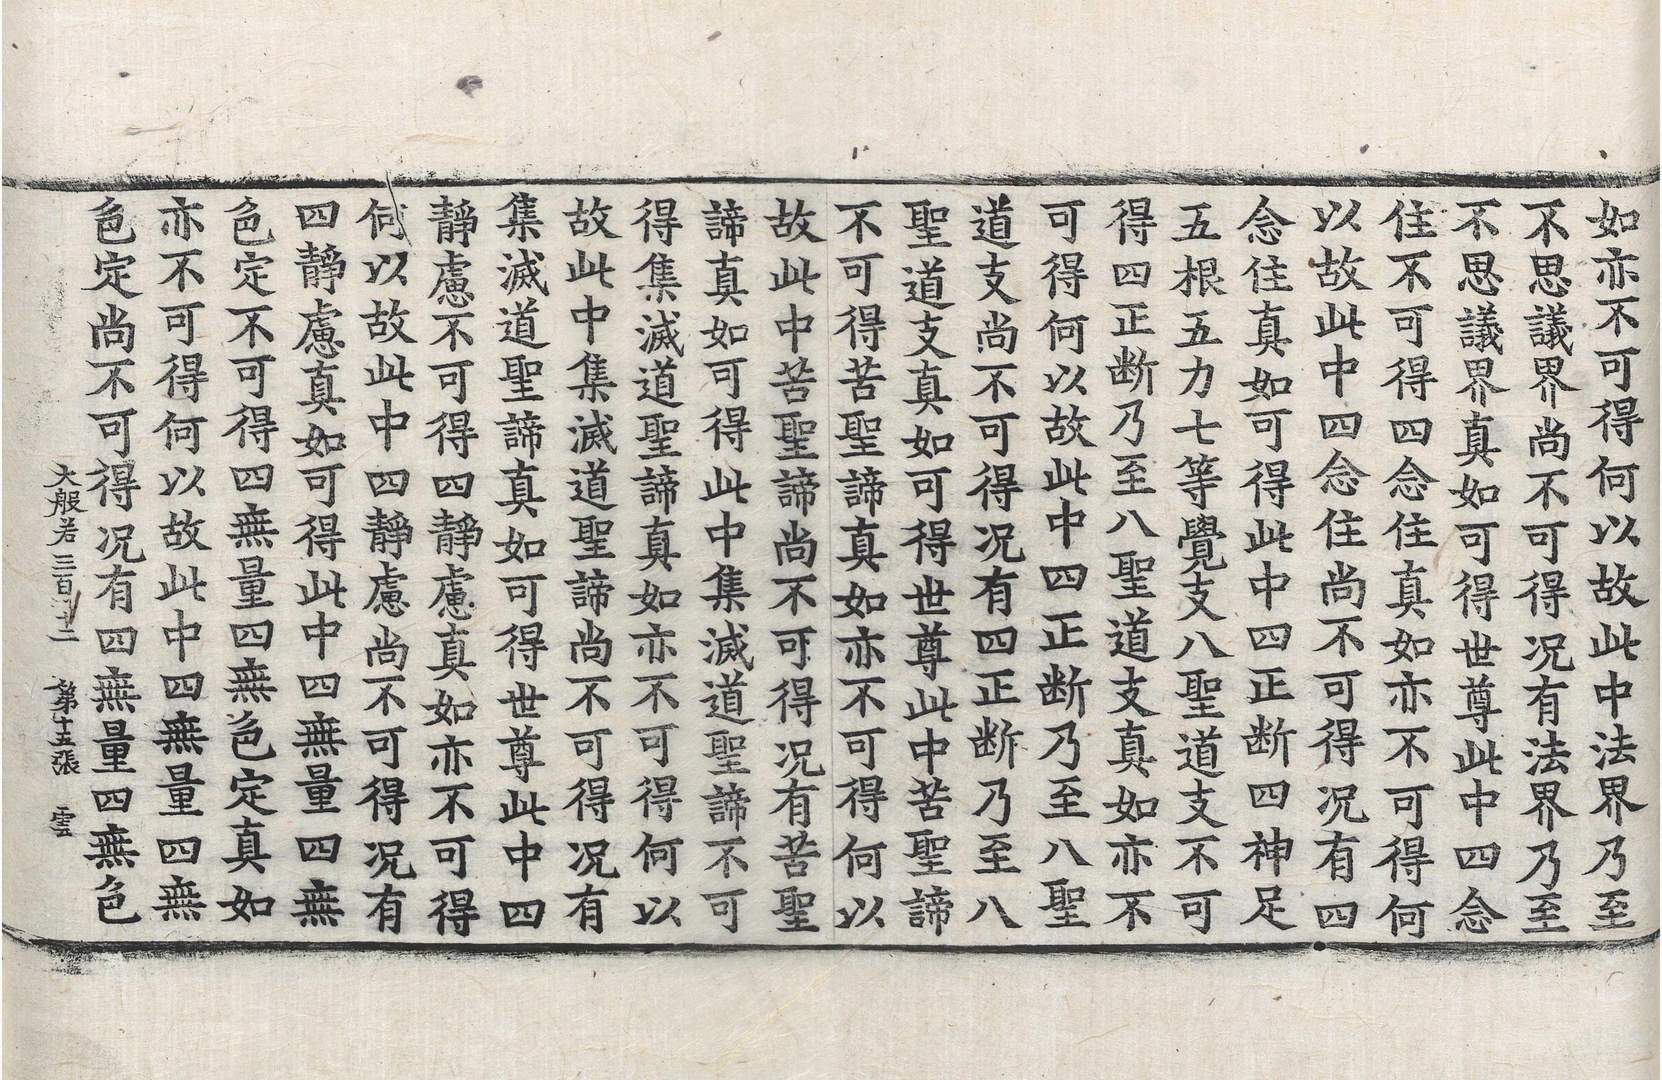 如亦不可得何以故此中法界乃至
不思議界尚不可得况有法界乃至
不思議界真如可得世尊此中四念
住不可得四念住真如亦不可得何
以故此中四念住尚不可得况有四
念住真如可得此中四正断四神足
五根五力七等覺支八聖道支不可
得四正断乃至八聖道支真如亦不
可得何以故此中四正断乃至八聖
道支尚不可得况有四正断乃至八
聖道支真如可得世尊此中苦聖諦
不可得苦聖諦真如亦不可得何以
故此中苦聖諦尚不可得况有苦聖
諦真如可得此中集滅道聖諦不可
得集滅道聖諦真如亦不可得何以
故此中集滅道聖諦尚不可得况有
集滅道聖諦真如可得世尊此中四
靜慮不可得四靜慮真如亦不可得
何以故此中四靜慮尚不可得况有
四靜慮真如可得此中四無量四無
色定不可得四無量四無色定真如
亦不可得何以故此中四無量四無
色定尚不可得况有四無量四無色
大般若三百二 第十五張 雲